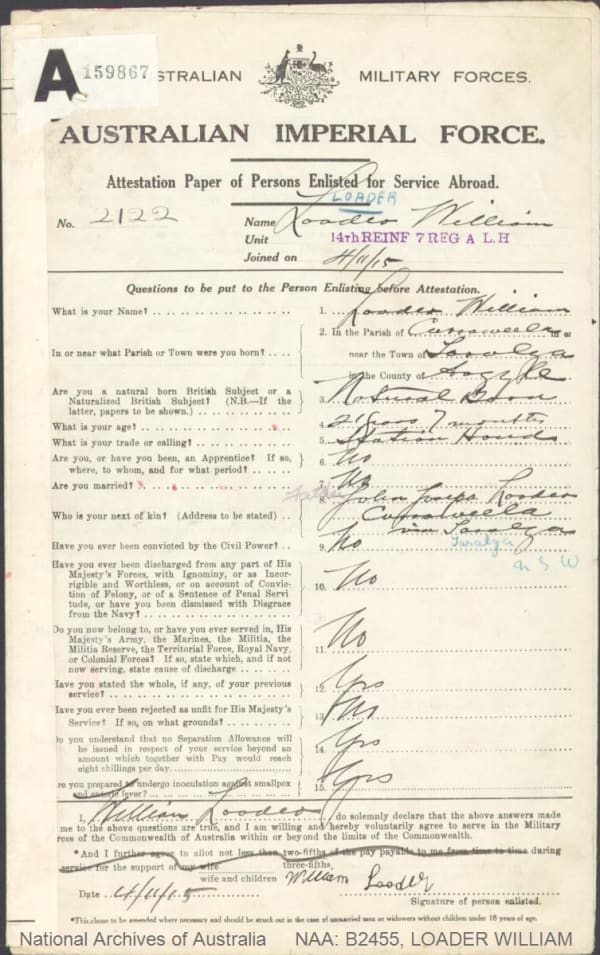 A 159867
AUSTRALIAN MILITARY FORCES.
AUSTRALIAN IMPERIAL FORCE.
Attestation Paper of Persons Enlisted for Service Abroad.
LOADER
No. 2122 Name Loader William
Unit 14TH REINF 7 REG A L.H
Joined on 4/11/15
Questions to be put to the Person Enlisting before Attestation.
What is your Name? 1. Loader William
In or near what Parish or Town were you born? 2. In the Parish of Curraweela in or
near the Town of Taralga
in the County of Argyle
Are you a natural born British Subject or a Naturalized British Subject? (N.B.—If the latter, papers to be shown.) 3. Natural Born
What is your age? 4. 21 years 7 months
What is your trade or calling? 5. Station Hand
Are you, or have you been, an Apprentice? If so, where, to whom, and for what period? 6. No
Are you married? 7. No
Who is your next of kin? (Address to be stated) 8. Father John Joseph Loader
Curraweela
via Taralga
Taralga
N S W
Have you ever been convicted by the Civil Power? 9. No
Have you ever been discharged from any part of His
Majesty's Forces, with Ignominy, or as Incor-
rigible and Worthless, or on account of Convic-
tion of Felony, or of a Sentence of Penal Servi
tude, or have you been dismissed with Disgrace
from the Navy? 10. No
Do you now belong to, or have you ever served in, His
Majesty's Army, the Marines, the Militia, the
Militia Reserve, the Territorial Force, Royal Navy,
or Colonial Forces? If so, state which, and if not
now serving, state cause of discharge 11. No
Have you stated the whole, if any, of your previous
service? 12. Yes
Have you ever been rejected as unfit for His Majesty's
Service? If so, on what grounds? 13. No
Do you understand that no Separation Allowance will
be issued in respect of your service beyond an
amount which together with Pay would reach
eight shillings per day. 14. Yes
Are you prepared to undergo inoculation against smallpox
and enteric fever? 15. Yes
I, William Loader, do solemnly declare that the above answers made
me to the above questions are true, and I am willing and hereby voluntarily agree to serve in the Military
rces of the Commonwealth of Australia within or beyond the limits of the Commonwealth.
*And I further agree to allot not less than two-fifths of the pay payable to me from time to time during
three-fifths,
service for the support of my wife
wife and children
William Loader
Signature of person enlisted.
Date 4/11/15
*This clause to be amended where necessary and should be struck out in the case of unmarried men or widowers without children under 18 years of age.
National Archives of Australia NAA: B2455, LOADER WILLIAM